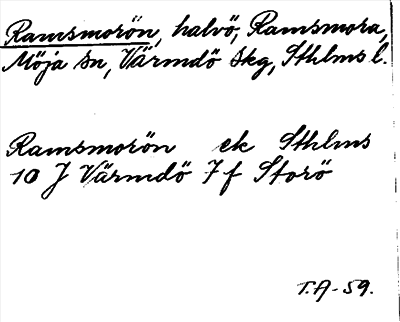 Ramsmorön, halvö, Ramsmora,
Möja sn, Värmdö skg, Sthlms l.
Ramsmorön ek Sthlms
10 J Värmdö 7 f Storö
T.A-59.